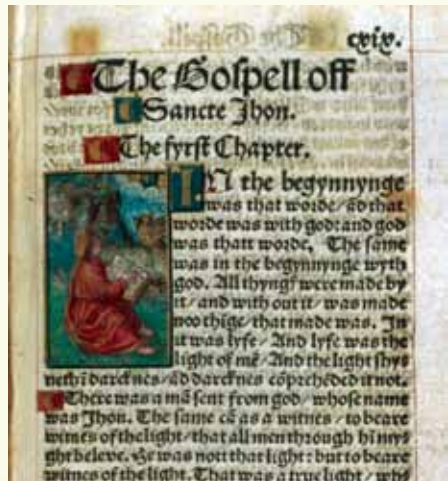 cxix.
The Gospell off
Sancte Jhon.
The fyrst Chapter.
IN the begynnynge
was that worde/ ād that
worde was with god: and god
was thatt worde. The same
was in the begynnynge wyth
god. All thyngꝭ were made by
it/ and with out it/ was made
noo thīge/ that made was. In
it was lyfe/ And lyfe was the
light of mē/ And the light shys
neth ī darcknes/ ād darcknes cōprehēded it not.
There was a mā sent from god/ whose name
was Jhon. The same cā as a witnes/ to beare
witnes of the light/ that all men through hī mys
ght beleve. He was nott that light: but to beare
witnes of the light. That was a true light/ whs